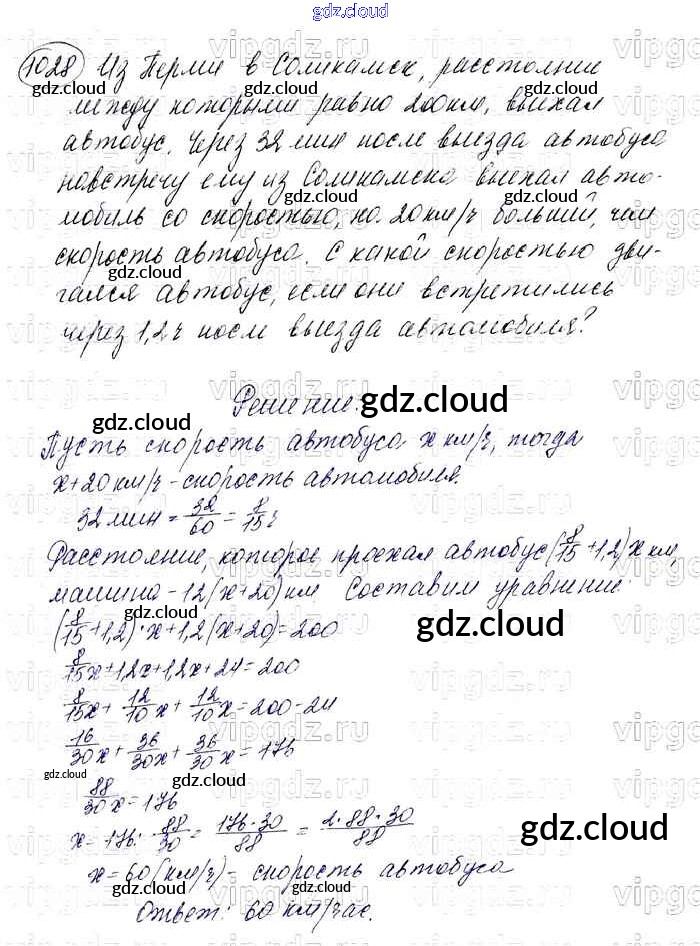 gdz.cloud
1028 Из Перми в Соликамск, расстояние
между которыми равно 200 км, выехал
автобус. Через 32 мин после выезда автобуса
навстречу ему из Соликамска выехал авто-
мобиль со скоростью, на 20 км/ч большей, чем
скорость автобуса. С какой скоростью дви-
гался автобус, если они встретились
через 1,2 ч после выезда автомобиля?
Решение:
Пусть скорость автобуса x км/ч, тогда
x+20 км/ч - скорость автомобиля.
32 мин = 32/60 = 8/15 ч
Расстояние, которое проехал автобус (8/15 + 1,2) x км,
машина - 12 (x+20) км Составим уравнение:
(8/15 + 1,2) · x + 1,2 (x+20) = 200
8/15 x + 1,2x + 1,2x + 24 = 200
8/15 x + 12/10 x + 12/10 x = 200 - 24
16/30 x + 36/30 x + 36/30 x = 176
88/30 x = 176
x = 176 : 88/30 = 176·30/88 = 2·88·30/88
x = 60 (км/ч) - скорость автобуса
Ответ: 60 км/час.